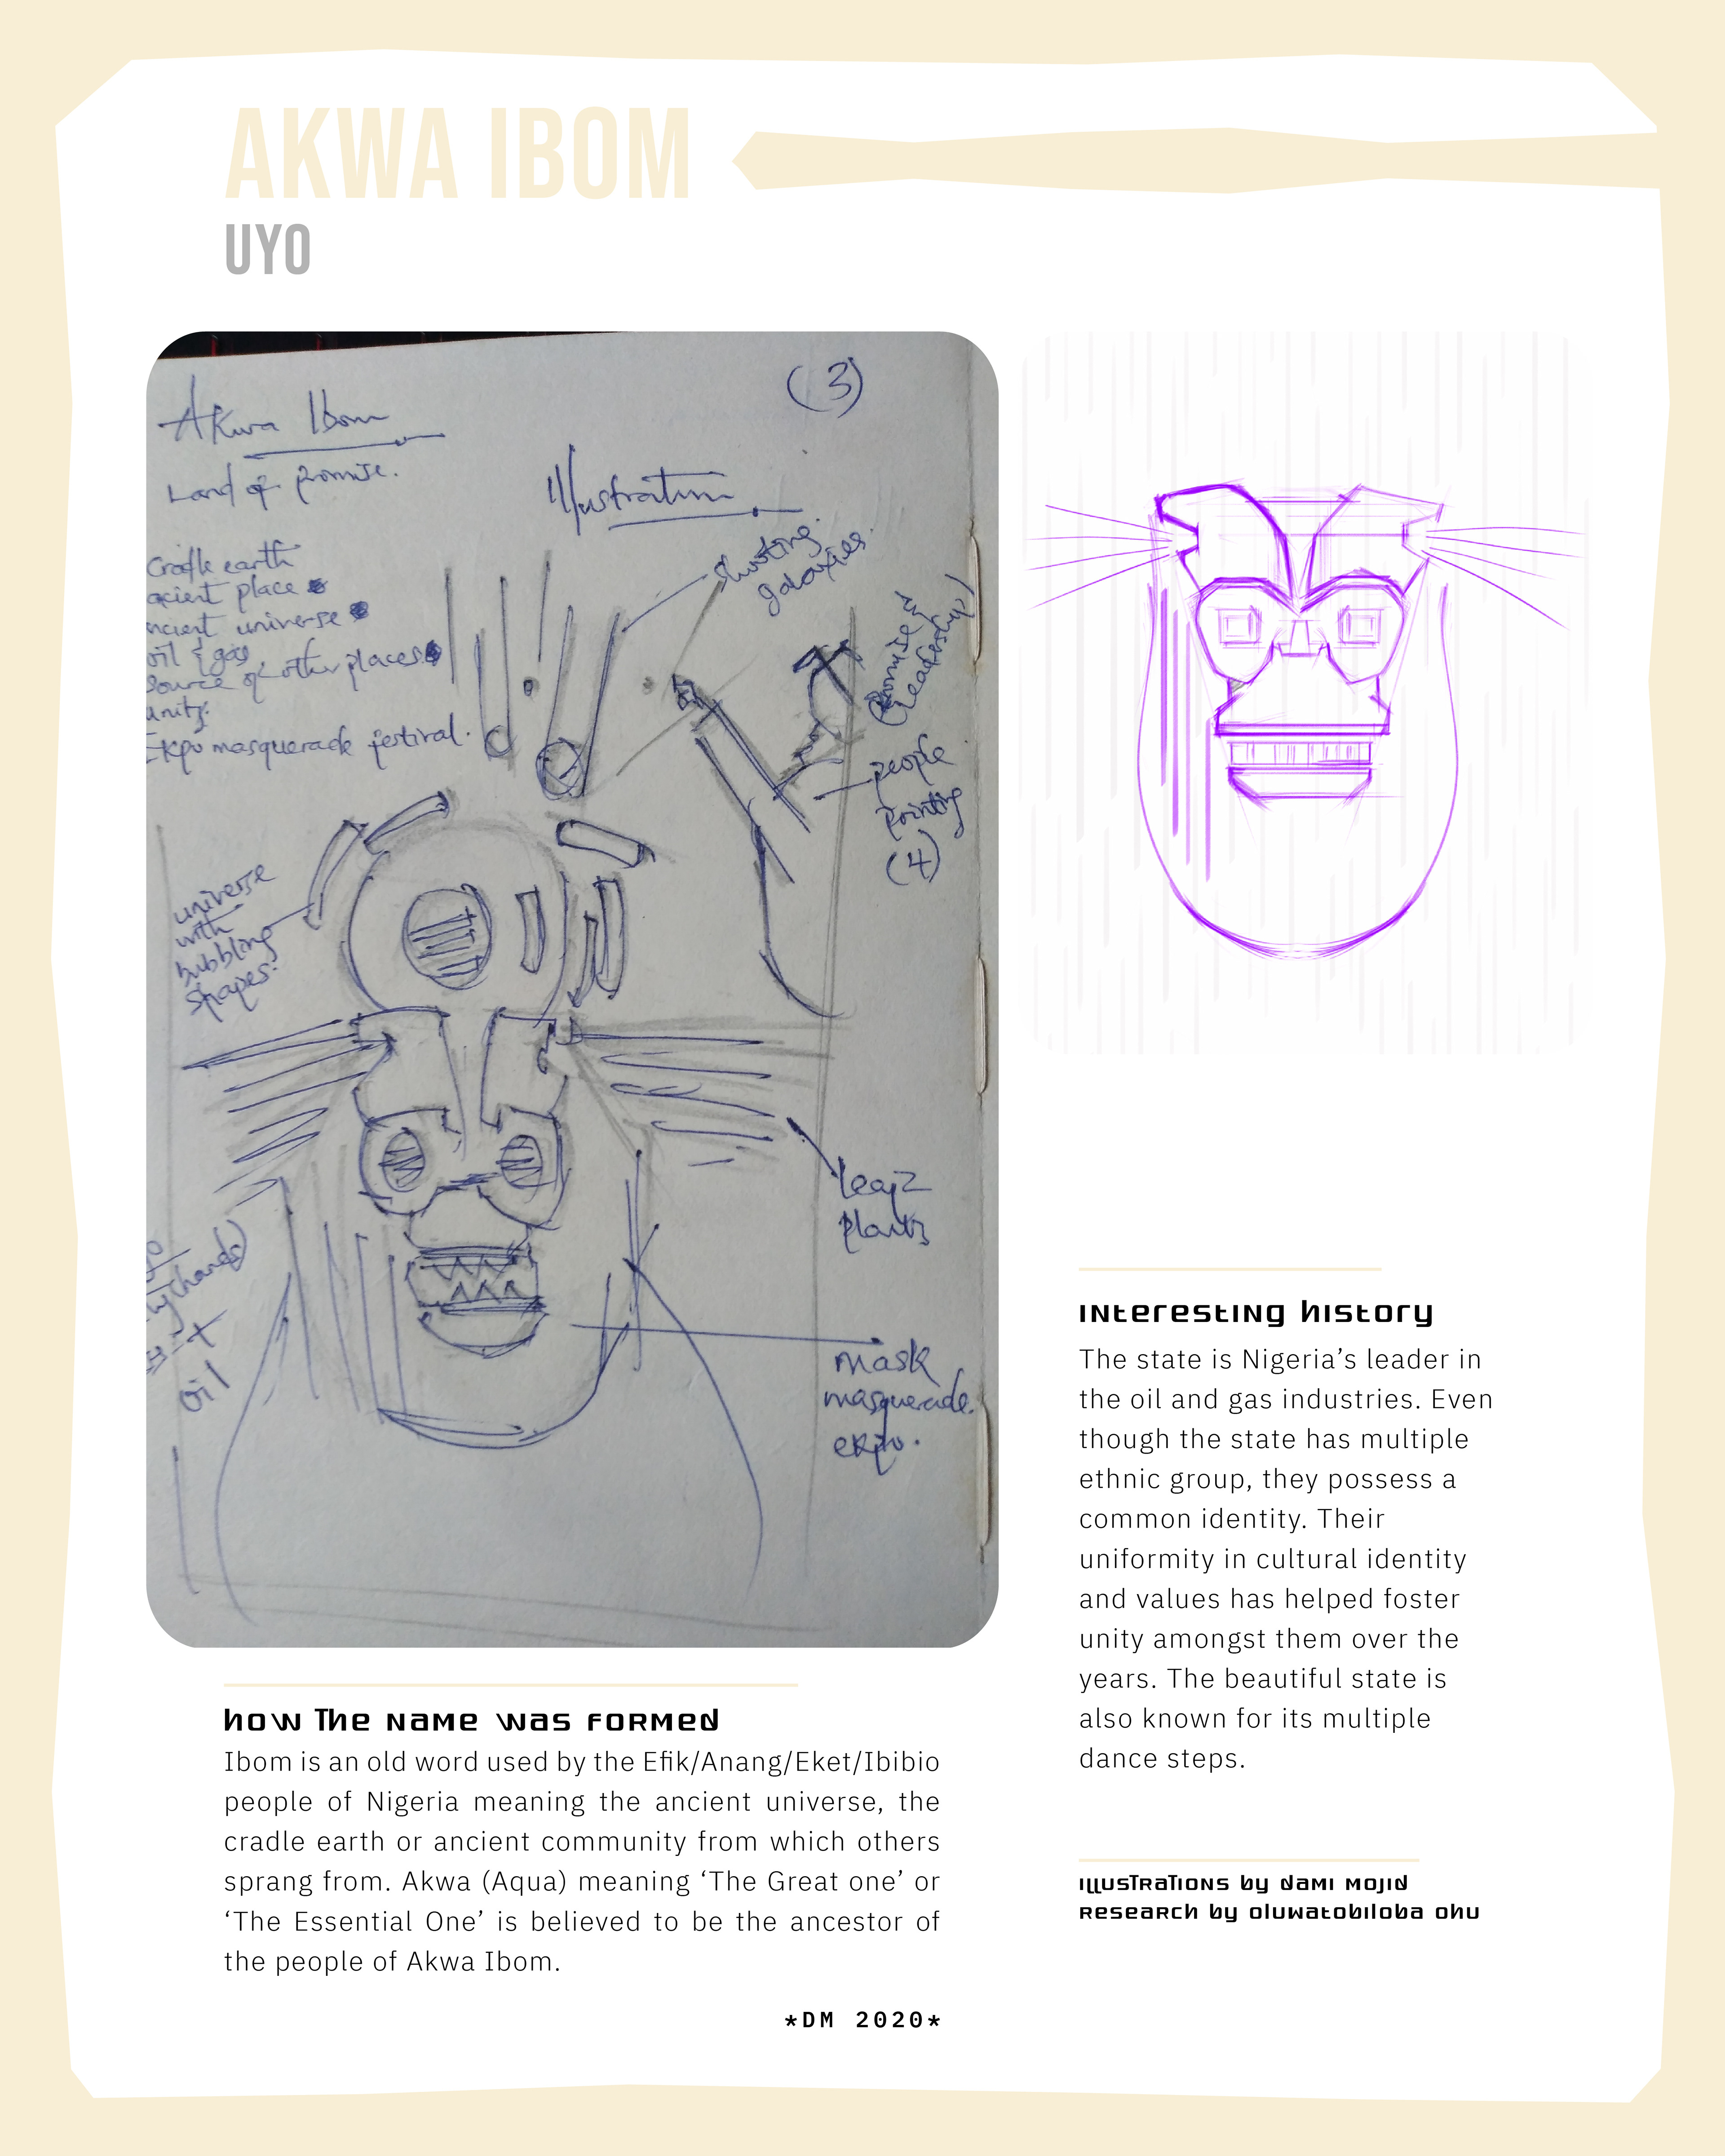 AKWA IBOM
UYO
Akwa Ibom
(3)
Land of promise.
Illustration
Cradle earth
acient place
ncient universe
oil & gas
source of other places
unity.
Ekpo masquerade festival.
shooting
galaxies.
Promise of
(Leadership)
people
pointing
(4)
universe
with
bubbling
shapes.
leafz
plants
oil
mask
masquerade.
ekpo.
Interesting history
The state is Nigeria’s leader in
the oil and gas industries. Even
though the state has multiple
ethnic group, they possess a
common identity. Their
uniformity in cultural identity
and values has helped foster
unity amongst them over the
years. The beautiful state is
also known for its multiple
dance steps.
how The Name was formed
Ibom is an old word used by the Efik/Anang/Eket/Ibibio
people of Nigeria meaning the ancient universe, the
cradle earth or ancient community from which others
sprang from. Akwa (Aqua) meaning ‘The Great one’ or
‘The Essential One’ is believed to be the ancestor of
the people of Akwa Ibom.
Illustrations by Dami Mojid
Research by Oluwatobiloba Ohu
*DM 2020*